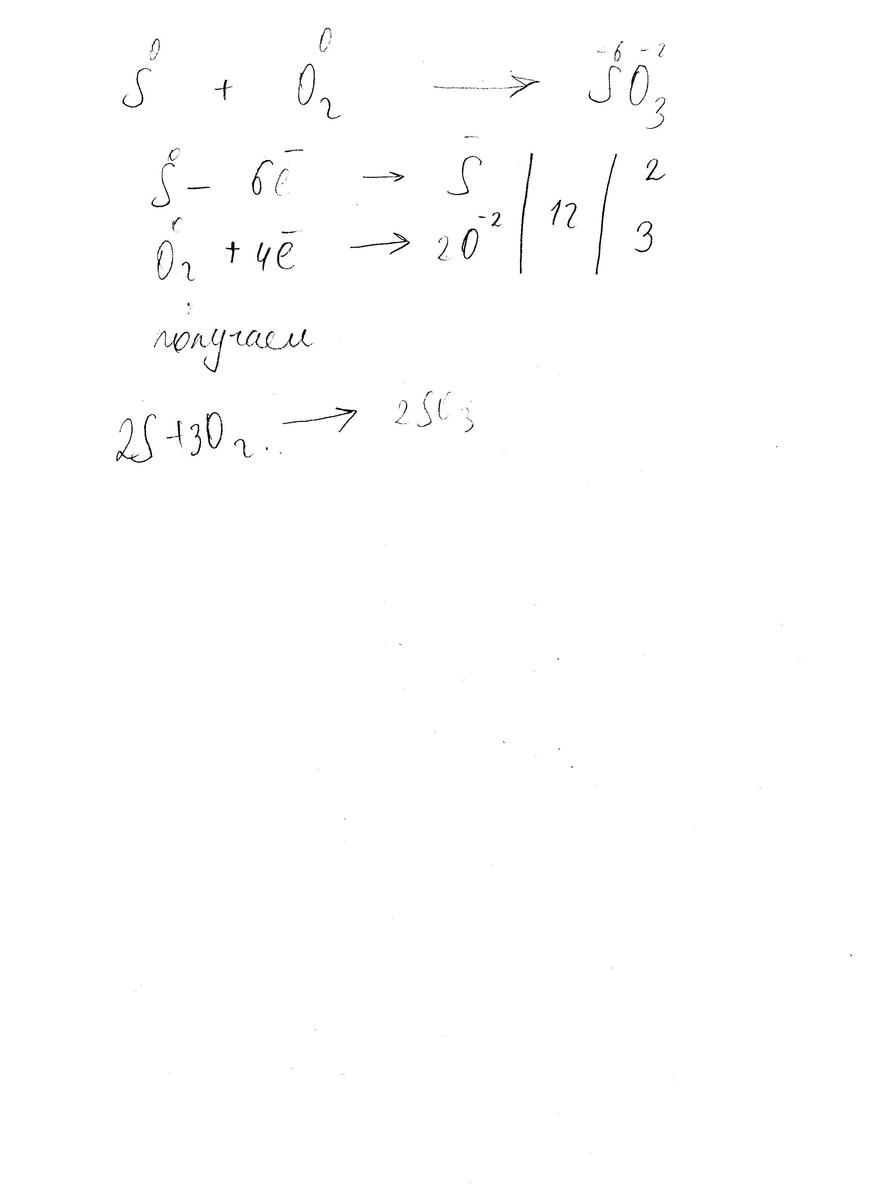 S⁰ + O₂⁰ → S⁻⁶O₃⁻²
S⁰ – 6ē → S⁻ | 12 | 2
O₂ + 4ē → 2O⁻² | 3
получаем
2S + 3O₂ → 2SO₃